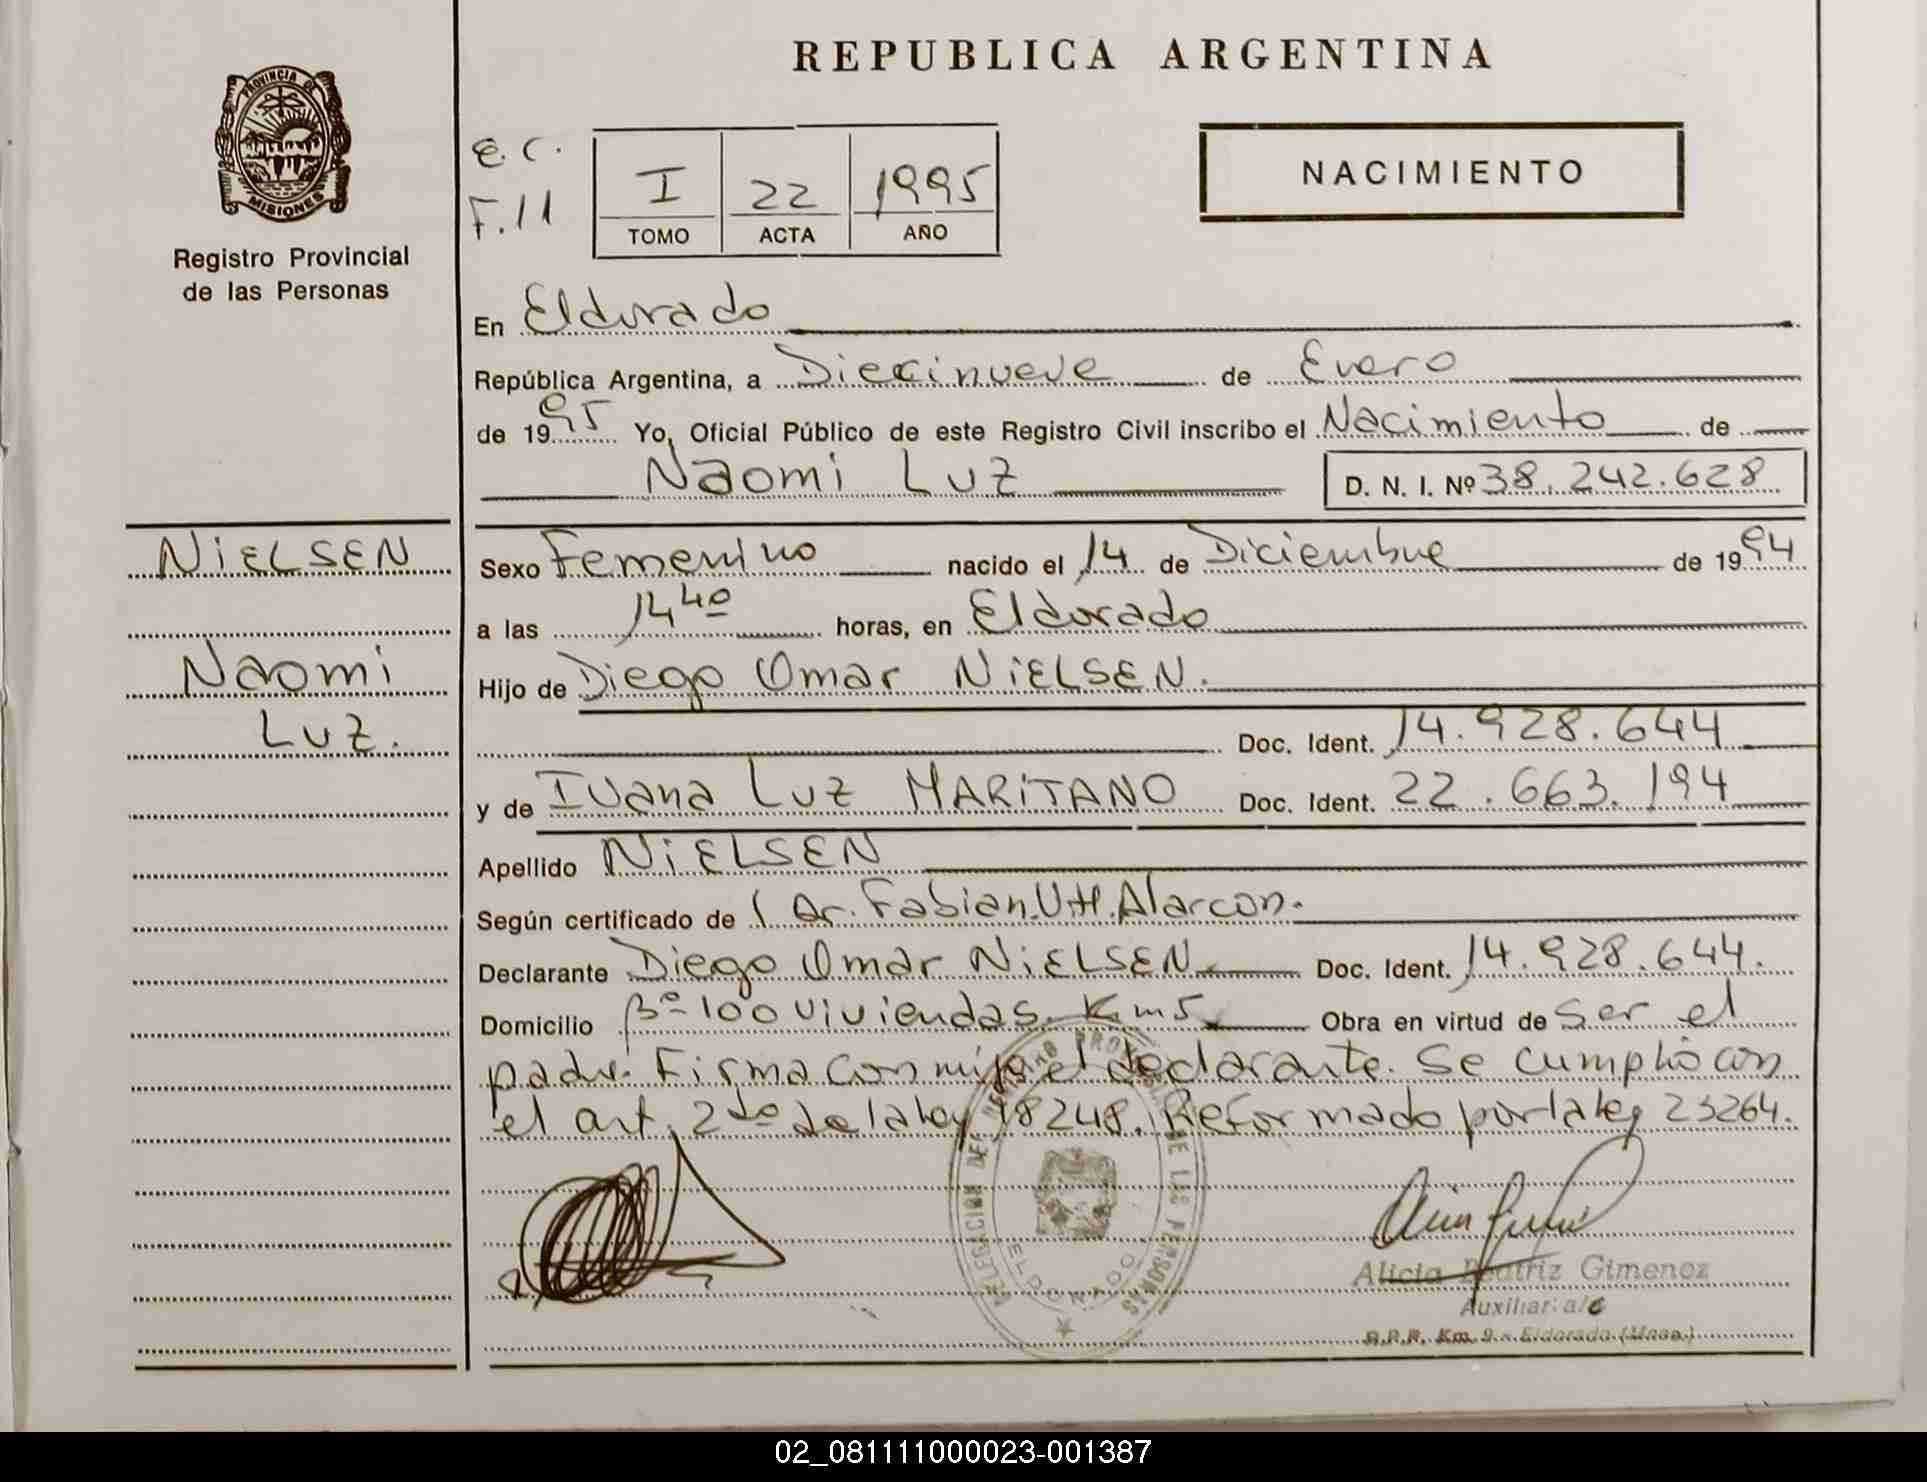 REPUBLICA ARGENTINA
PROVINCIA DE
MISIONES
Registro Provincial
de las Personas
E.C.
F.11
I 22 1995
TOMO ACTA AÑO
NACIMIENTO
En Eldorado
República Argentina, a Diecinueve de Enero
de 1995 Yo, Oficial Público de este Registro Civil inscribo el Nacimiento de
Naomi Luz D. N. I. Nº 38.242.628
NIELSEN
Naomi
Luz.
Sexo Femenino nacido el 14 de Diciembre de 1994
a las 14 40 horas, en Eldorado
Hijo de Diego Omar NIELSEN.
Doc. Ident. 14.928.644
y de Ivana Luz MARITANO Doc. Ident. 22.663.194
Apellido NIELSEN
Según certificado de Dr. Fabian Alarcon.
Declarante Diego Omar NIELSEN Doc. Ident. 14.928.644.
Domicilio Bº 100 viviendas. Km 5 Obra en virtud de ser el
padre. Firma con migo el declarante. Se cumplió con
el art. 2do de la ley 18248. Reformado por la ley 23264.
DELEGACION DEL REGISTRO PROVINCIAL DE LAS PERSONAS
ELDORADO
Alicia Beatriz Gimenez
Auxiliar a/c
R.P.P. Km. 9 - Eldorado (Mnes.)
02_081111000023-001387